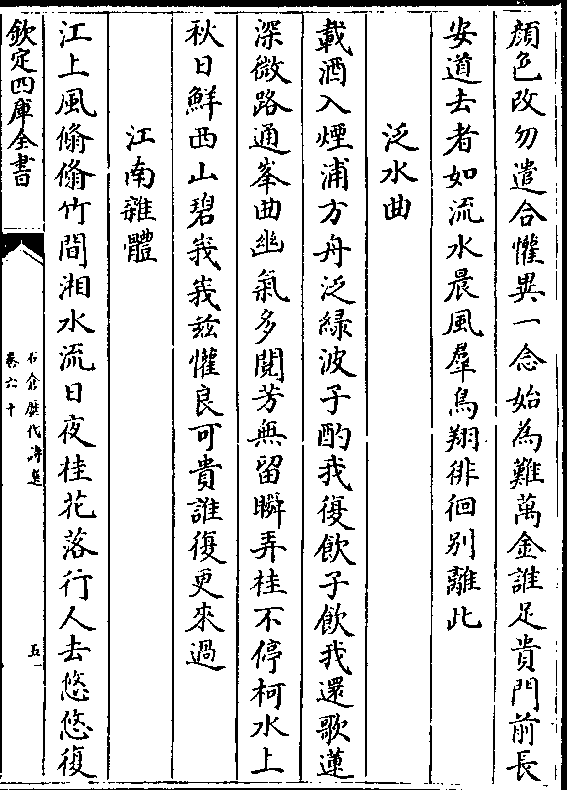 顔色改勿遣合懽異一念始為難萬金誰足貴門前長
安道去者如流水晨風羣鳥翔徘徊别離此
泛水曲
載酒入煙浦方舟泛緑波子酌我復飲子飲我還歌蓮
深微路通峯曲幽氣多閲芳無留瞬弄桂不停柯水上
秋日鮮西山碧峩峩兹懽良可貴誰復更來過
江南雜體
江上風翛翛竹間湘水流日夜桂花落行人去悠悠復
欽定四庫全書
石倉歴代詩選
卷六十
五